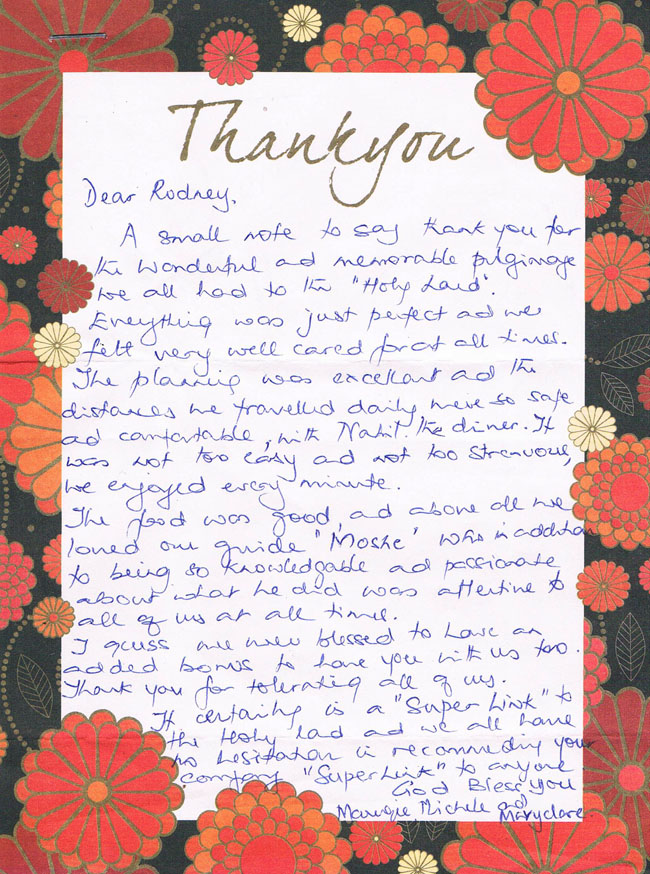 Thankyou
Dear Rodney,
A small note to say thank you for
the wonderful and memorable pilgrimage
we all had to the "Holy Land".
Everything was just perfect ad we
felt very well cared for at all times.
The planning was excellent ad the
distances we travelled daily were so safe
ad comfortable, with the It
was not too easy and not too strenuous,
we enjoyed every minute.
The food was good, ad above all we
loved our guide 'Moshe' who in addition
to being so knowledgable ad passionate
about what he did was attentive to
all of us at all times.
I guess we were blessed to have an
added bonus to have you with us too.
Thank you for tolerating all of us.
It certainly is a "Super Link" to
the Holy Land ad we all have
no hesitation in recommending your
company "SuperLink" to anyone
God Bless you
Michele and
Maryclare